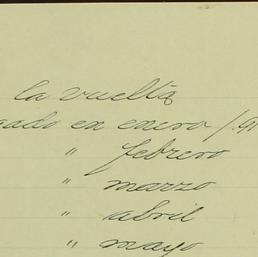 la vuelta
en enero
" febrero
" marzo
" abril
" mayo